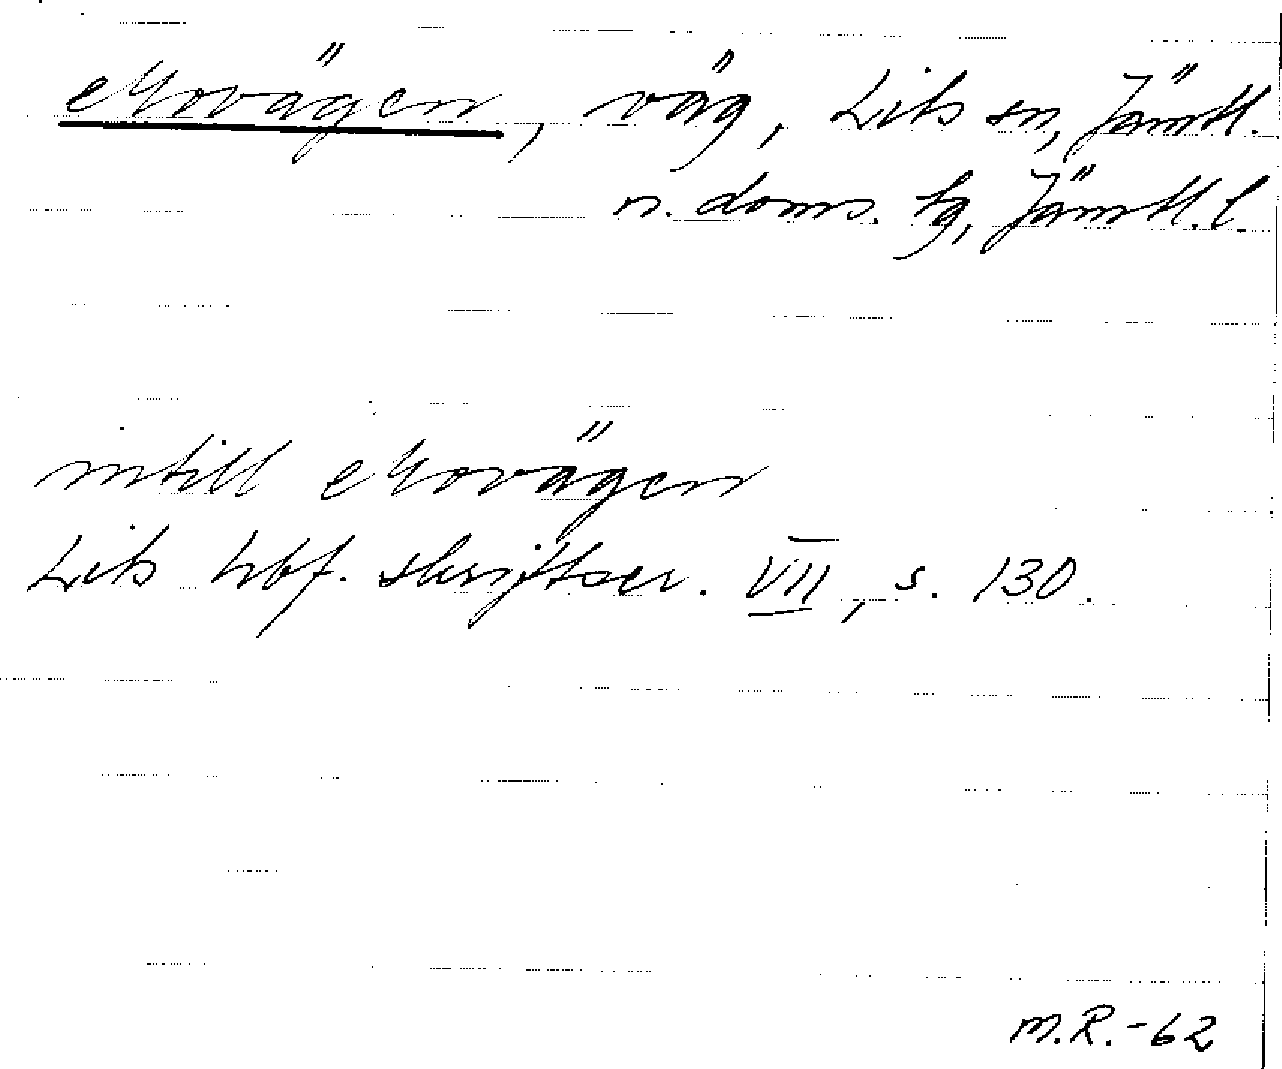 Movägen, väg, Lits sn, Jämtl.
n. doms. tg, Jämtl. l.
intill Movägen
Lits hbf. skriftser. VII, s. 130.
M.R.-62